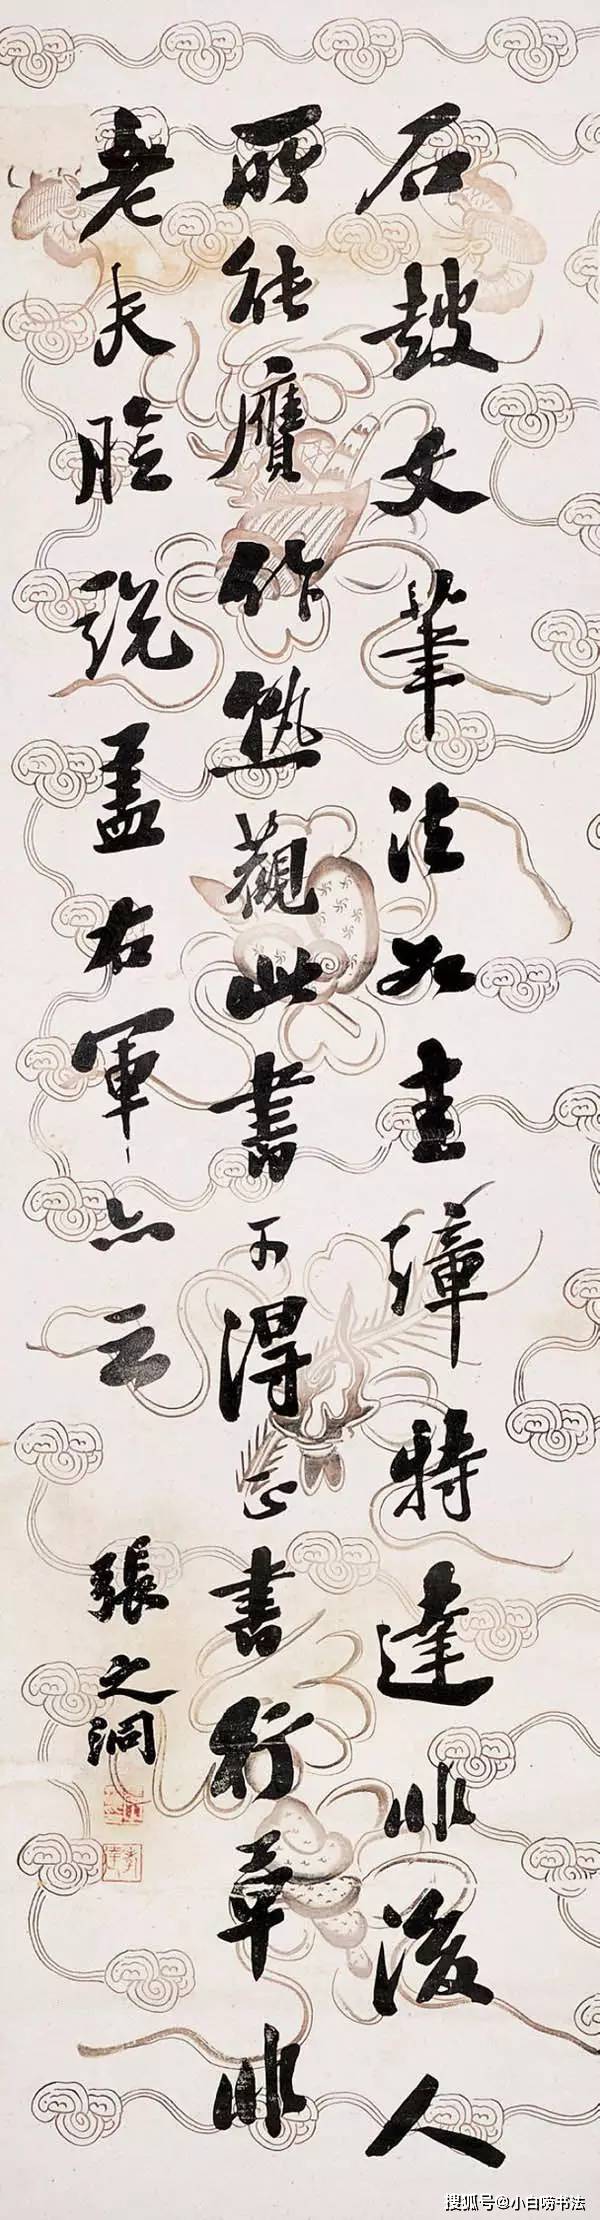 石鼓文筆法如圭璋特達非後人
所能贗作熟觀此書可得正書行草非
老夫臆說蓋右軍亦云
張之洞
搜狐号@小白唠书法